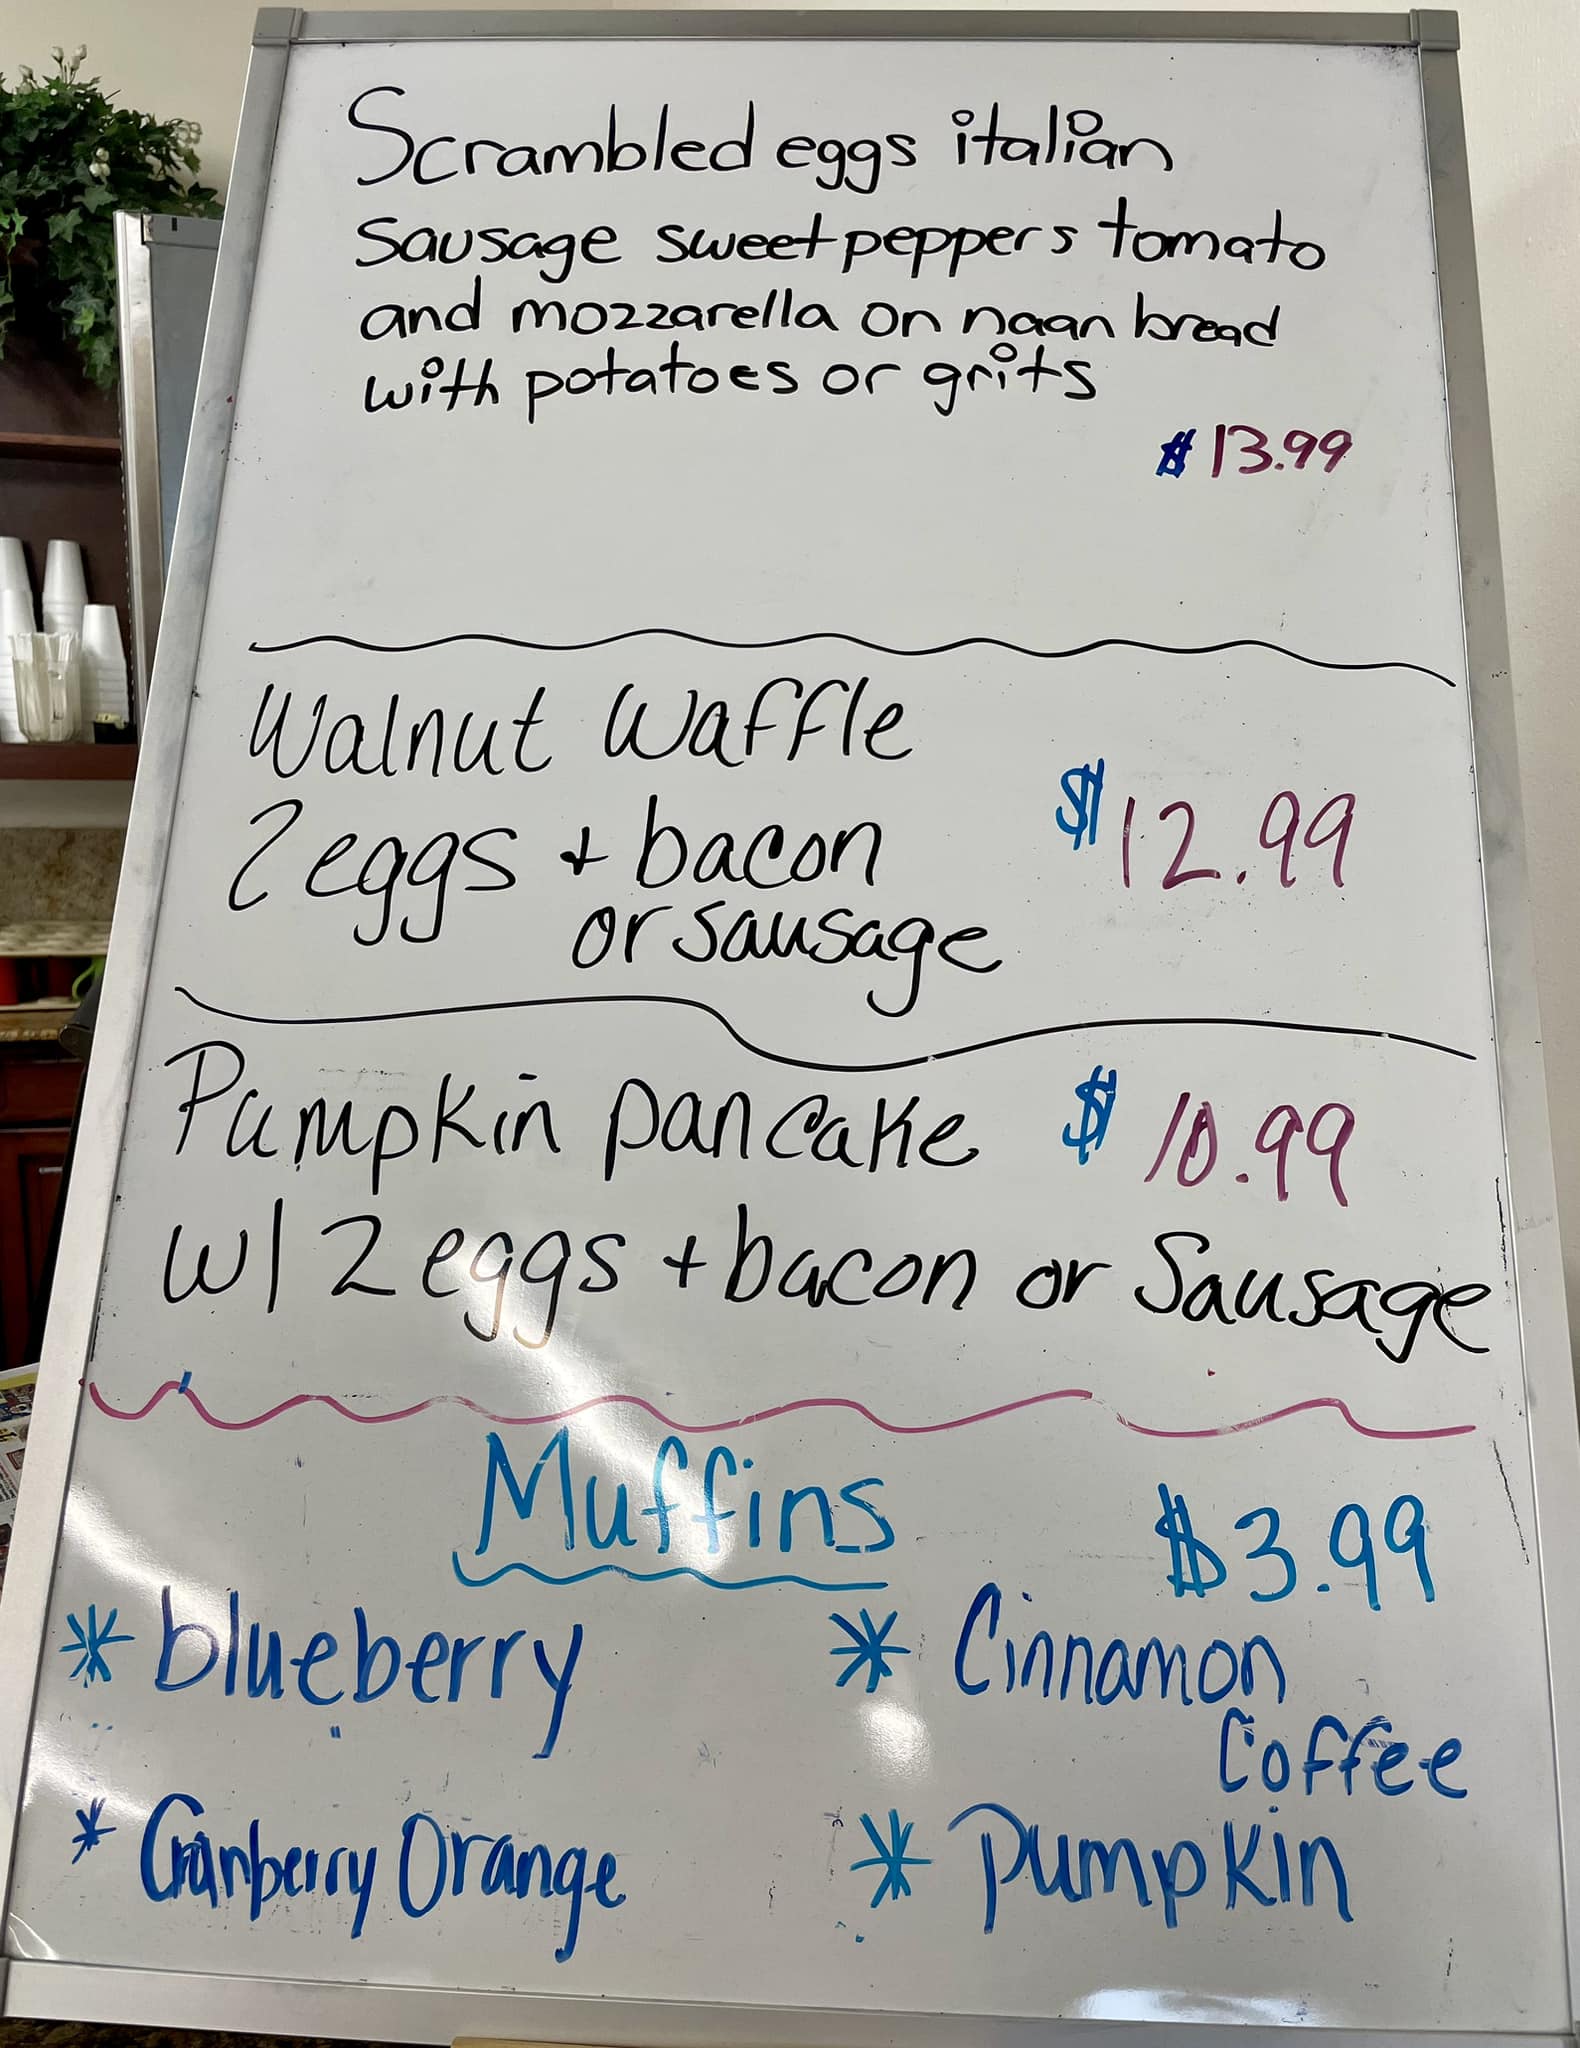 Scrambled eggs italian
Sausage sweet peppers tomato
and mozzarella on naan bread
with potatoes or grits
$13.99
Walnut Waffle
2 eggs + bacon $12.99
or sausage
Pumpkin pancake $10.99
w/ 2 eggs + bacon or Sausage
Muffins $3.99
* blueberry * Cinnamon
Coffee
* Cranberry Orange * Pumpkin